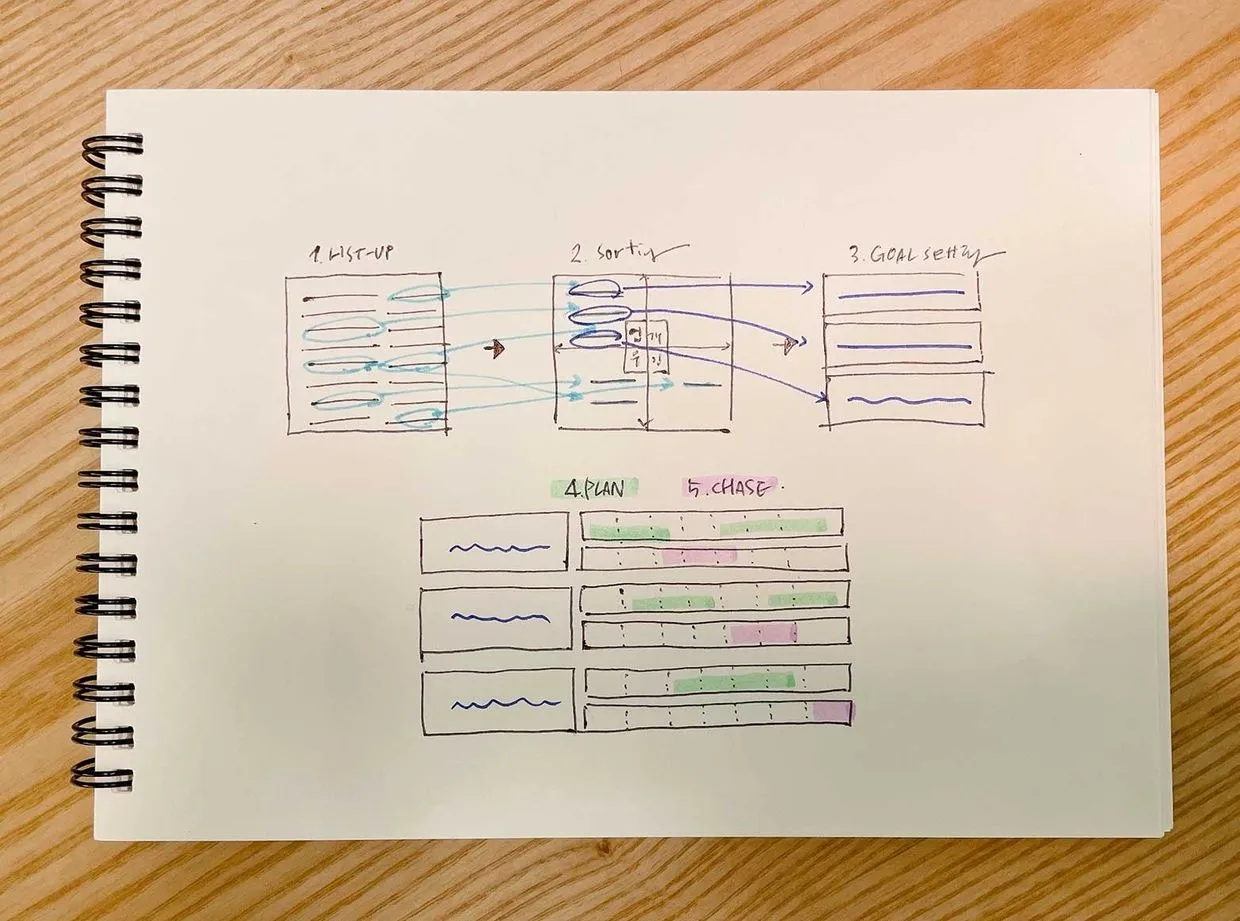 1. LIST-UP
2. Sorting
3. GOAL setting
4. PLAN
5. CHASE.